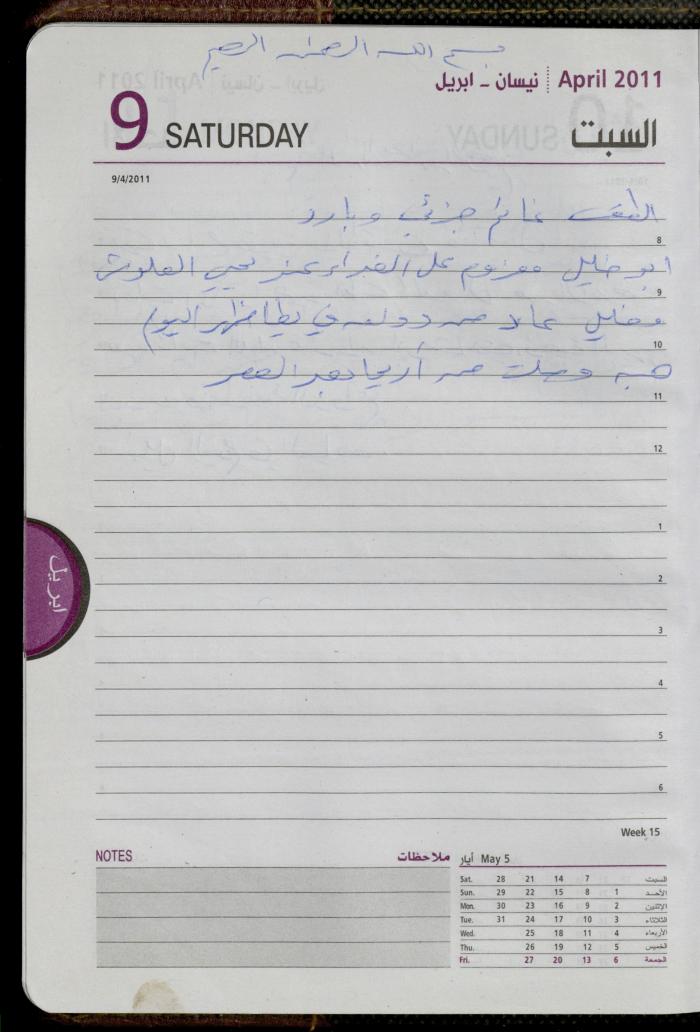 بسم الله الرحمن الرحيم
نيسان - ابريل April 2011
9 SATURDAY السبت
9/4/2011
الطقس غائم جزئي وبارد
8
ابو خليل معزوم على الغداء عند يحيى
9
وخليل عاد من دورته في يطا ظهر اليوم
10
هبه وصلت من أريحا بعد العصر
11
12
1
2
3
4
5
6
ابريل
Week 15
NOTES ملاحظات
أيار May 5
Sat. 28 21 14 7 السبت
Sun. 29 22 15 8 1 الأحد
Mon. 30 23 16 9 2 الإثنين
Tue. 31 24 17 10 3 الثلاثاء
Wed. 25 18 11 4 الأربعاء
Thu. 26 19 12 5 الخميس
Fri. 27 20 13 6 الجمعة